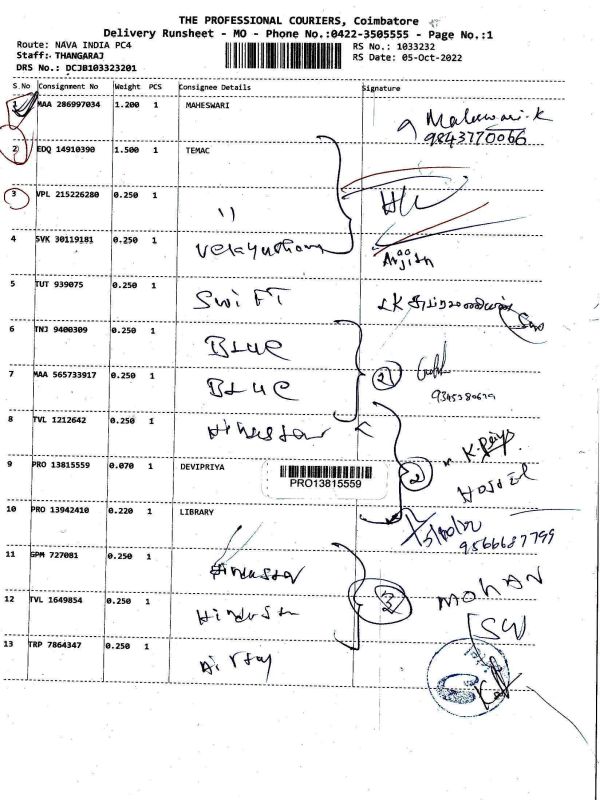 THE PROFESSIONAL COURIERS, Coimbatore
Delivery Runsheet - MO - Phone No.:0422-3505555 - Page No.:1
Route: NAVA INDIA PC4
RS No.: 1033232
Staff: THANGARAJ
RS Date: 05-Oct-2022
DRS No.: DCJB103323201
S No Consignment No Weight PCS Consignee Details Signature
1 MAA 286997034 1.200 1 MAHESWARI
9843770066
2 EDQ 14910390 1.500 1 TEMAC
3 VPL 215226280 0.250 1 11
4 SVK 30119181 0.250 1
5 TUT 939075 0.250 1 SwiFT
6 TNJ 9400309 0.250 1 BLUE
7 MAA 565733917 0.250 1 BLUE 2
8 TVL 1212642 0.250 1
9 PRO 13815559 0.070 1 DEVIPRIYA 2
PRO13815559
HOSTEL
10 PRO 13942410 0.220 1 LIBRARY
9566687799
11 GPM 727081 0.250 1
12 TVL 1649854 0.250 1 3 MOHAN
13 TRP 7864347 0.250 1